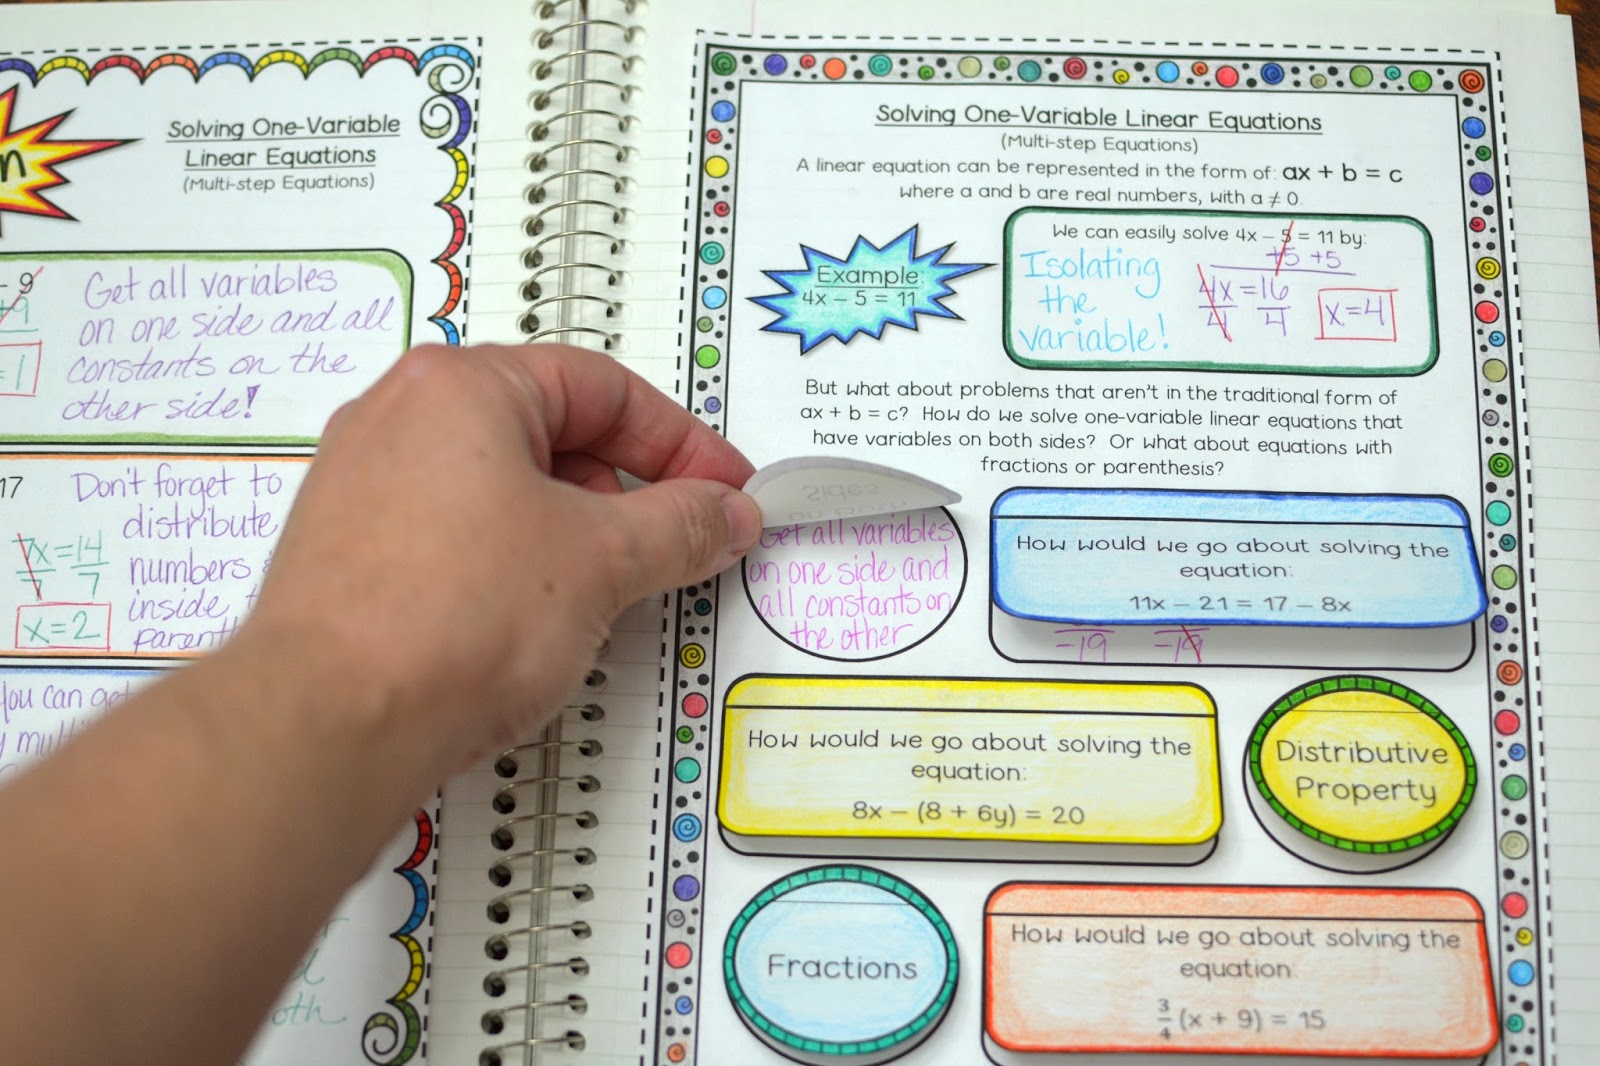 n
Solving One-Variable
Linear Equations
(Multi-step Equations)
- 9
+9
= 1
Get all variables
on one side and all
constants on the
other side!
17
7x = 14
7 7
x = 2
Don't forget to
distribute
numbers
inside
You can get
oth.
Solving One-Variable Linear Equations
(Multi-step Equations)
A linear equation can be represented in the form of: ax + b = c
where a and b are real numbers, with a ≠ 0.
Example:
4x – 5 = 11
We can easily solve 4x – 5 = 11 by:
+5 +5
Isolating
the
variable!
4x = 16
4 4
x = 4
But what about problems that aren't in the traditional form of
ax + b = c? How do we solve one-variable linear equations that
have variables on both sides? Or what about equations with
fractions or parenthesis?
Sides
Get all variables
on one side and
all constants on
the other
How would we go about solving the
equation:
11x – 21 = 17 – 8x
-19 -19
How would we go about solving the
equation:
8x – (8 + 6y) = 20
Distributive
Property
Fractions
How would we go about solving the
equation:
3/4 (x + 9) = 15